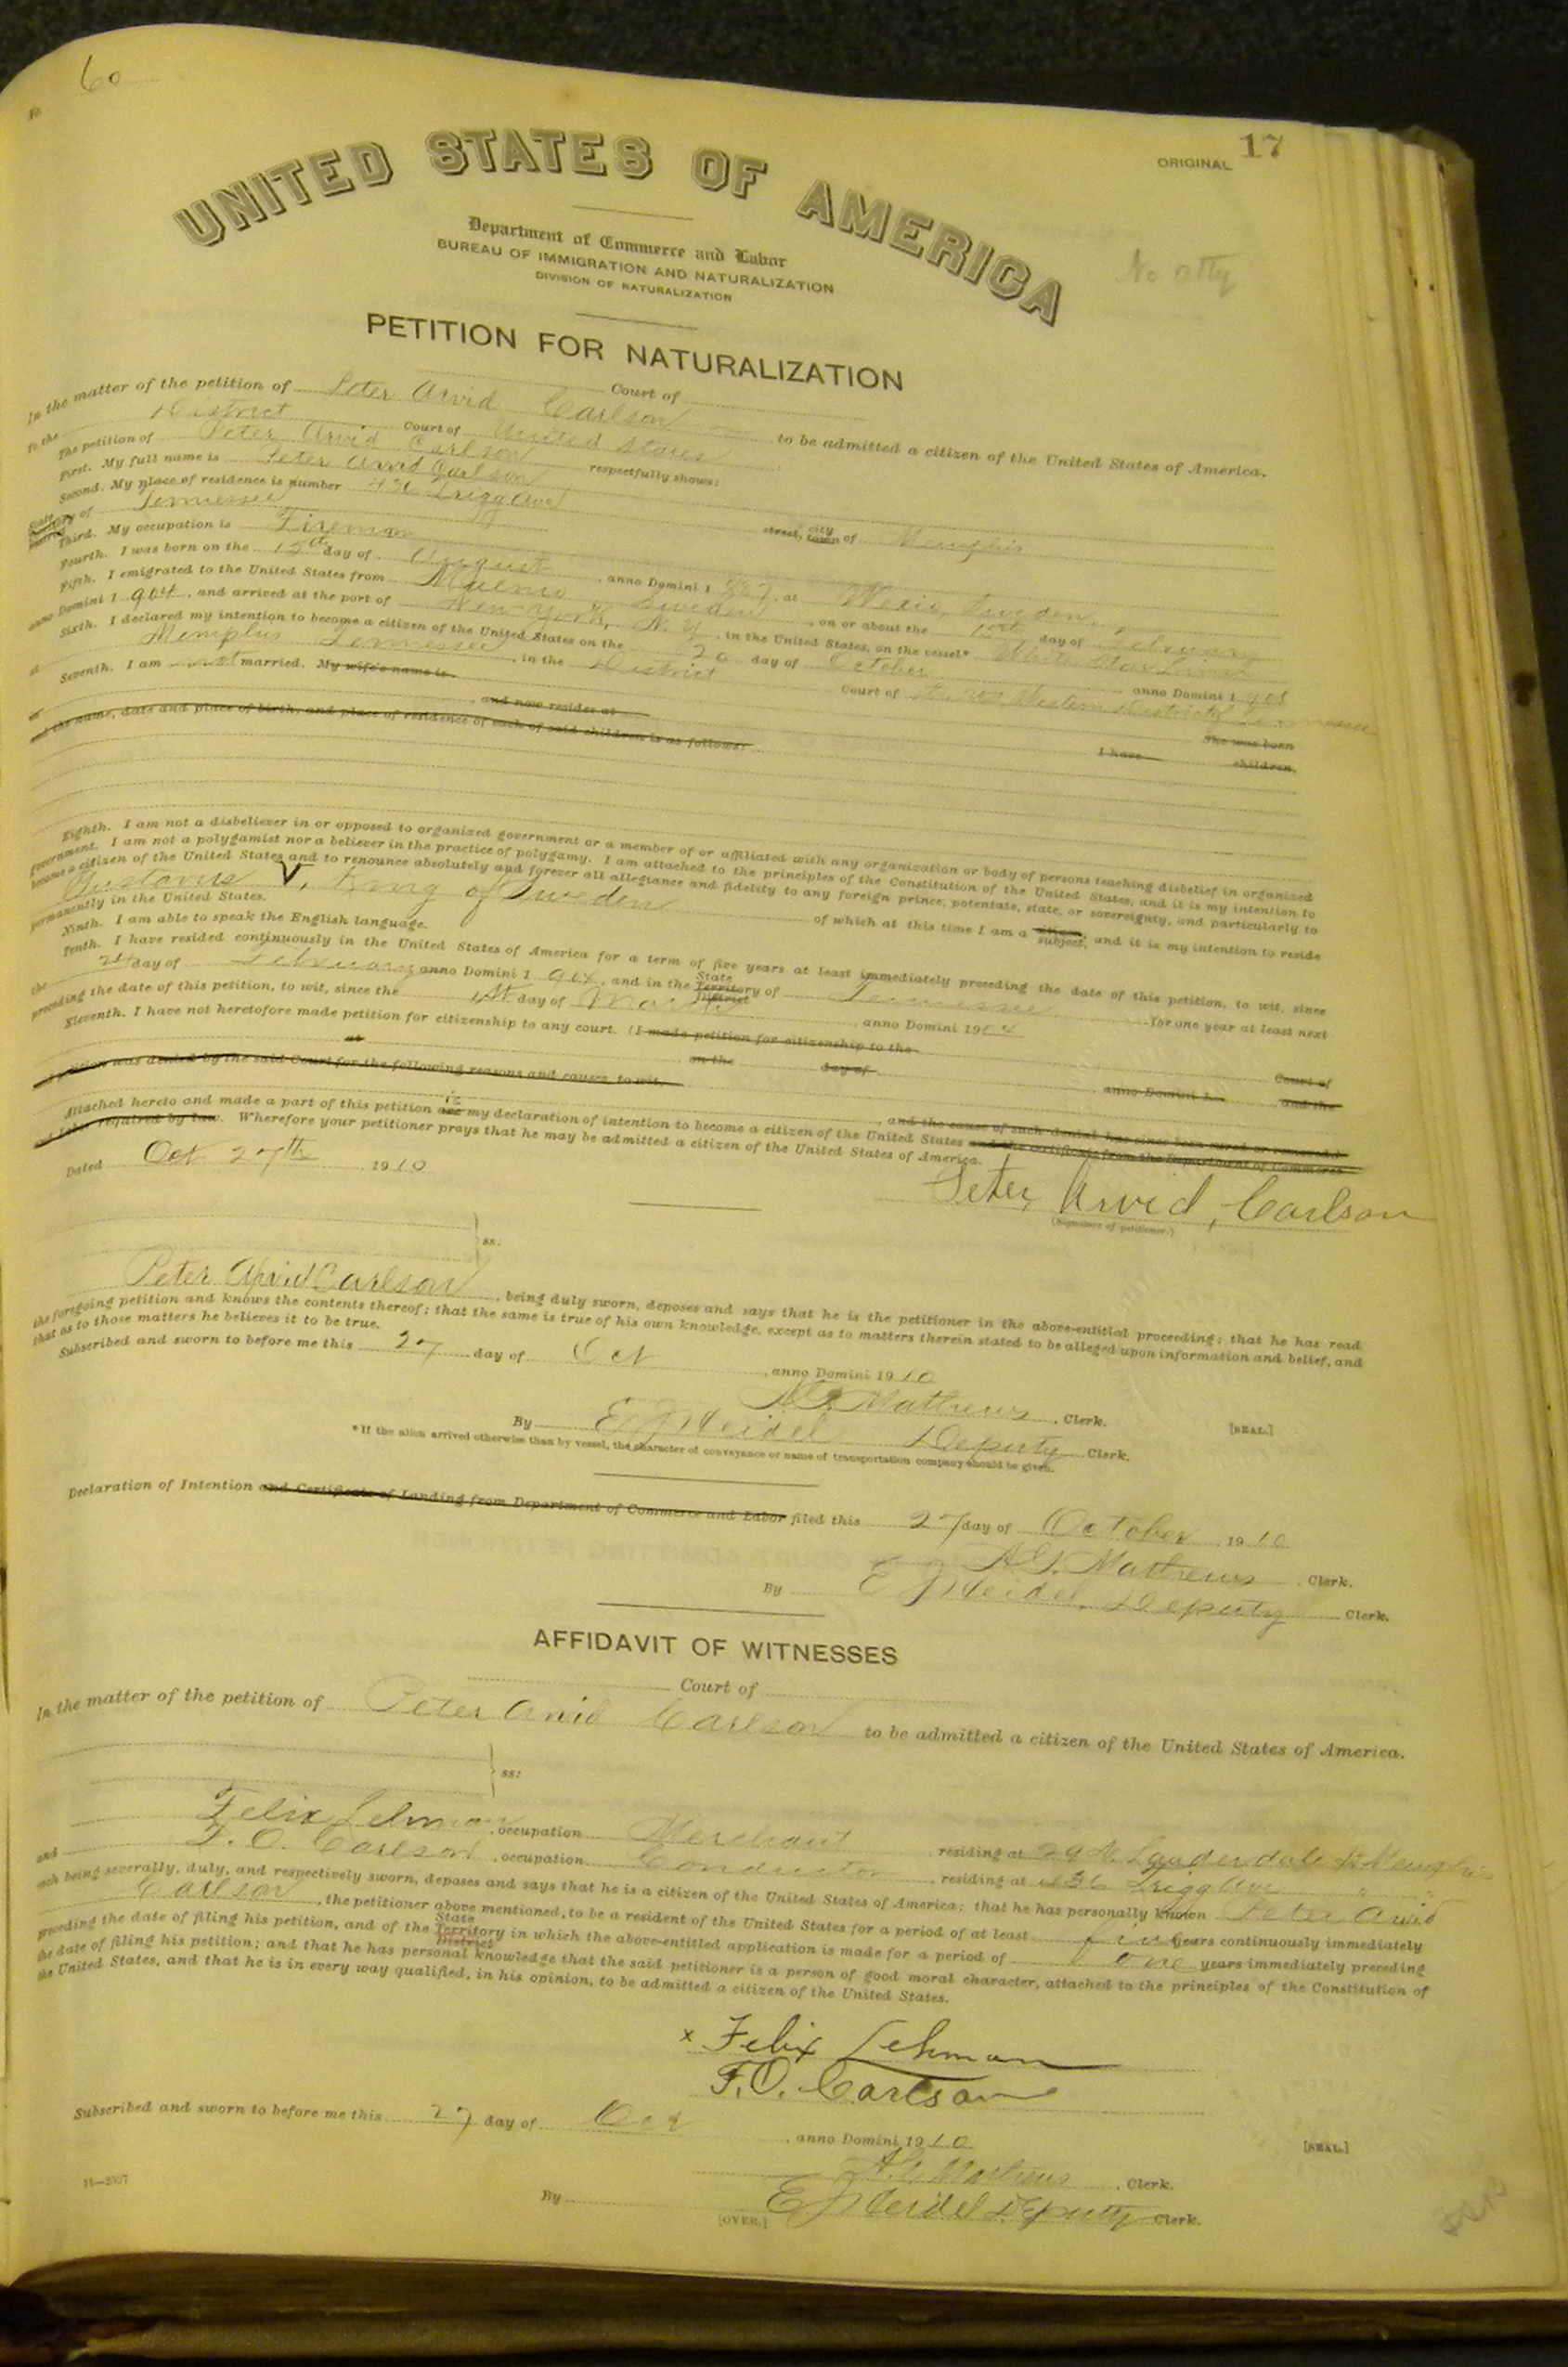 60
ORIGINAL 17
UNITED STATES OF AMERICA
No Atty
Department of Commerce and Labor
BUREAU OF IMMIGRATION AND NATURALIZATION
DIVISION OF NATURALIZATION
PETITION FOR NATURALIZATION
Court of
In the matter of the petition of Peter Arvid Carlson to be admitted a citizen of the United States of America.
To the District Court of United States
The petition of Peter Arvid Carlson respectfully shows:
First. My full name is Peter Arvid Carlson
Second. My place of residence is number 436 Trigg Ave street, city town of Memphis
State Territory District of Tennessee
Third. My occupation is Fireman
Fourth. I was born on the 15th day of August, anno Domini 1887, at Wexio, Sweden.
Fifth. I emigrated to the United States from Malmo Sweden, on or about the day of February
anno Domini 1904, and arrived at the port of New York, N.Y., in the United States, on the vessel* White Star Line
Sixth. I declared my intention to become a citizen of the United States on the 20 day of October anno Domini 1908
at Memphis Tennessee, in the District Court of the US Western District of Tennessee
Seventh. I am not married. My wife's name is She was born
at , and now resides at I have children,
and the name, date and place of birth, and place of residence of each of said children is as follows:
Eighth. I am not a disbeliever in or opposed to organized government or a member of or affiliated with any organization or body of persons teaching disbelief in organized
government. I am not a polygamist nor a believer in the practice of polygamy. I am attached to the principles of the Constitution of the United States, and it is my intention to
become a citizen of the United States and to renounce absolutely and forever all allegiance and fidelity to any foreign prince, potentate, state, or sovereignty, and particularly to
Gustavus V, King of Sweden of which at this time I am a citizen subject, and it is my intention to reside
permanently in the United States.
Ninth. I am able to speak the English language.
Tenth. I have resided continuously in the United States of America for a term of five years at least immediately preceding the date of this petition, to wit, since
the 24 day of February anno Domini 1904, and in the State Territory District of Tennessee for one year at least next
preceding the date of this petition, to wit, since the 1st day of March, anno Domini 1904
Eleventh. I have not heretofore made petition for citizenship to any court. (I made petition for citizenship to the Court of
at on the day of , anno Domini 1 and the
petition was denied by the said Court for the following reasons and causes, to wit,
, and the cause of such denial has since been cured or removed.)
Attached hereto and made a part of this petition are is my declaration of intention to become a citizen of the United States and the certificate from the Department of Commerce
and Labor required by law. Wherefore your petitioner prays that he may be admitted a citizen of the United States of America.
Dated Oct 27th 1910
Peter, Arvid, Carlson
(Signature of petitioner.)
ss:
Peter Arvid Carlson, being duly sworn, deposes and says that he is the petitioner in the above-entitled proceeding; that he has read
the foregoing petition and knows the contents thereof; that the same is true of his own knowledge, except as to matters therein stated to be alleged upon information and belief, and
that as to those matters he believes it to be true.
Subscribed and sworn to before me this 27 day of Oct, anno Domini 1910
Mathews, Clerk. [SEAL.]
By E J Heidel Deputy Clerk.
* If the alien arrived otherwise than by vessel, the character of conveyance or name of transportation company should be given.
Declaration of Intention and Certificate of Landing from Department of Commerce and Labor filed this 27 day of October, 1910
A.G. Mathews, Clerk.
By E J Heidel, Deputy Clerk.
AFFIDAVIT OF WITNESSES
Court of
In the matter of the petition of Peter Arvid Carlson to be admitted a citizen of the United States of America.
ss:
Felix Lehman, occupation Merchant, residing at 29 N. Lauderdale St Memphis
and F. O. Carlson, occupation Conductor, residing at 436 Trigg Ave " "
each being severally, duly, and respectively sworn, deposes and says that he is a citizen of the United States of America; that he has personally known Peter Arvid
Carlson, the petitioner above mentioned, to be a resident of the United States for a period of at least five years continuously immediately
preceding the date of filing his petition, and of the State Territory District in which the above-entitled application is made for a period of one years immediately preceding
the date of filing his petition; and that he has personal knowledge that the said petitioner is a person of good moral character, attached to the principles of the Constitution of
the United States, and that he is in every way qualified, in his opinion, to be admitted a citizen of the United States.
x Felix Lehman
F.O. Carlson
Subscribed and sworn to before me this 27 day of Oct, anno Domini 1910 [SEAL.]
A.G. Mathews, Clerk.
11—2507
By E J Heidel Deputy Clerk.
[OVER.]